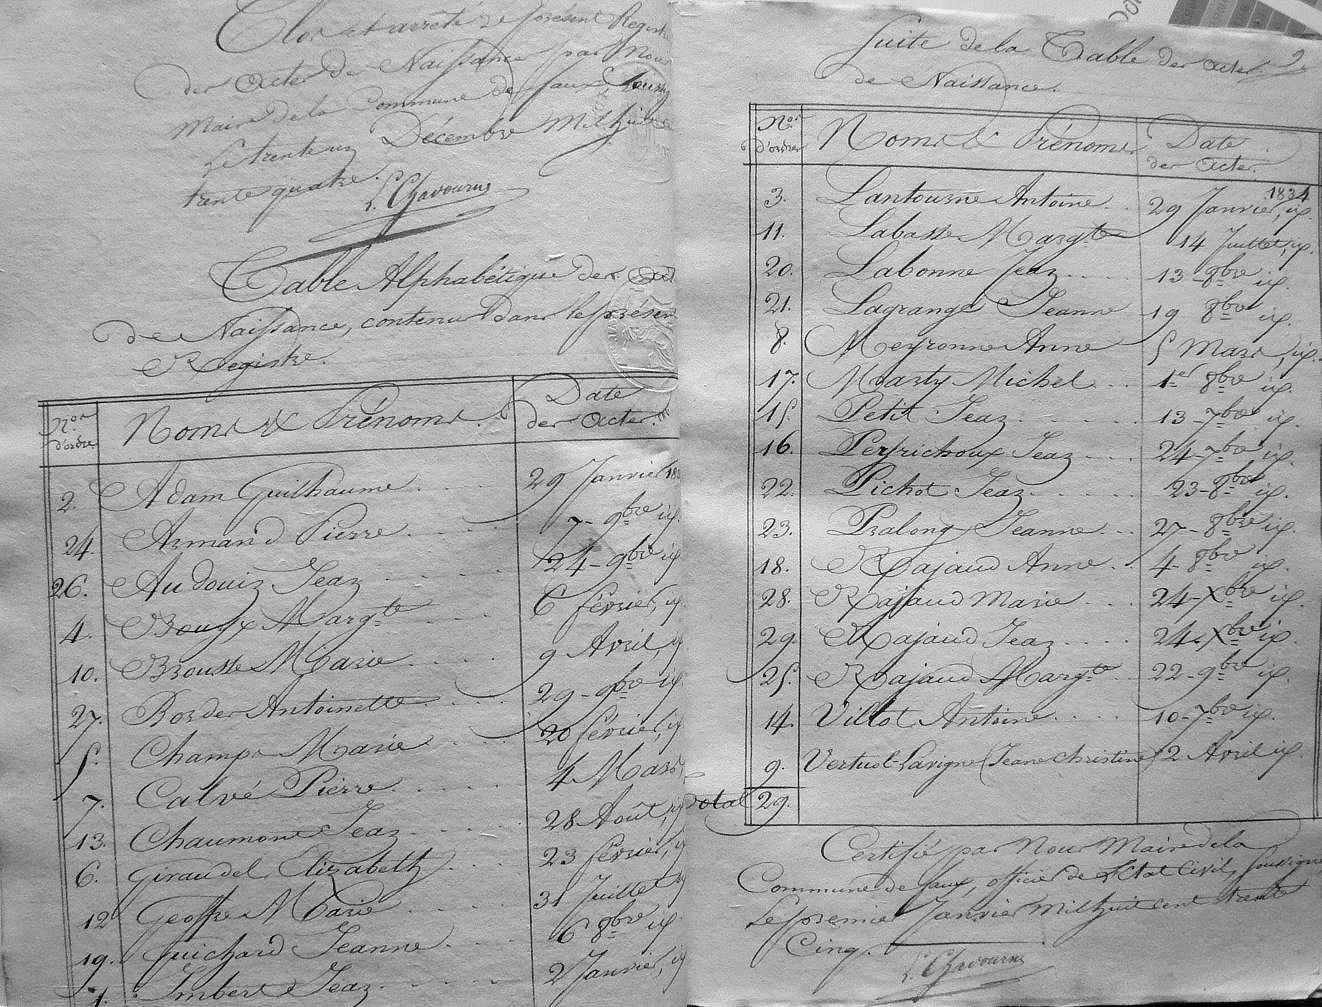 Clos et arrêté le présent Registre
der Acter de Naissance par Nous
Maire de la Commune de faux
Le trente un Décembre Mil huit
trente quatre.
L. Chavourne
Table Alphabétique der
De Naissance, contenu dans le présent
Registre.
Nos d'ordre Noms & Prénoms. Date der Acter.
2. Adam Guilhaume 29 Janvier 183
24 Armand Pierre 7 - 9bre id.
26. Audouin Jean 24 - 9bre id
4. Bouyx Margte 6 février, id.
10. Brousse Marie 9 Avril, id
27. Border Antoinette 29 - 9bre id
5. Champs Marie 20 février, id
7. Calvé Pierre 4 Mars,
13. Chaumont Jean 28 Août, id
6. Giraudel Elizabeth 23 février, id
12 Geoffre Marie 31 Juillet id
19. Guichard Jeanne 6 8bre id
1. Imbert Jean 2 Janvier, id
Suite de la Table der Acter 2
de Naissance.
Nos d'ordre Noms & Prénoms Date der Acter.
1834
3. Lantourne Antoine 29 Janvier, id.
11. Labasse Margte 14 Juillet, id.
20. Labonne Jean 13 - 8bre id.
21. Lagrange Jeanne 19 8bre id.
8. Meyronne Anne 5 Mars, id.
17. Marty Michel 1er 8bre id.
15. Petit Jean 13 - 7bre id.
16. Peyrichoux Jean 24 - 7bre id.
22. Pichot Jean 23 - 8bre id.
23. Pralong Jeanne 27 - 8bre id.
18. Rajaud Anne 4 - 8bre id.
28. Rajaud Marie 24 - Xbre id.
29. Rajaud Jean 24 - Xbre id.
25. Rajaud Margte 22 - 9bre id.
14. Villot Antoine 10 - 7bre id.
9. Vertuol-Lavigne (Jeane Christine) 2 Avril id.
Total 29.
Certifié par Nous Maire de la
Commune de faux, officier de l'Etat Civil, soussigné
Le premier Janvier Mil huit cent trente
Cinq.
L. Chavourne